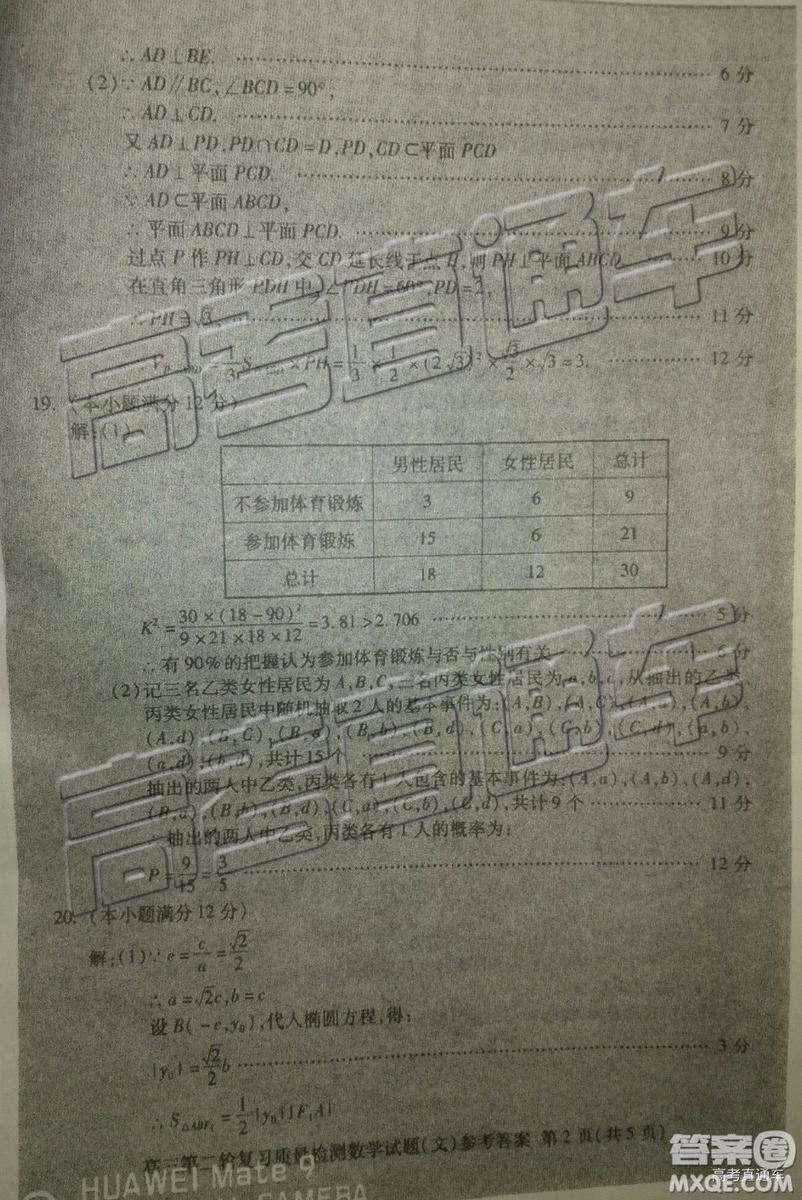 ∴ AD⊥BE. ………… 6分
(2)∵ AD∥BC,∠BCD=90°,
∴ AD⊥CD. ………… 7分
又 AD⊥PD,PD∩CD=D,PD,CD⊂平面 PCD
∴ AD⊥平面 PCD. ………… 8分
∵ AD⊂平面 ABCD,
∴ 平面 ABCD⊥平面 PCD. ………… 9分
过点 P 作 PH⊥CD,交 CD 延长线于点 H,则 PH⊥平面 ABCD. ………… 10分
在直角三角形 PDH 中,∠PDH=60°,PD=2,
∴ PH=√3, ………… 11分
×PH=1/3×1/2×(2√3)²×√3/2×√3=3. ………… 12分
19. (本小题满分12分)
解:(1)
男性居民 女性居民 总计
不参加体育锻炼 3 6 9
参加体育锻炼 15 6 21
总计 18 12 30
K²=30×(18-90)²/9×21×18×12=3.81>2.706 ………… 5分
∴ 有90%的把握认为参加体育锻炼与否与性别有关 ………… 6分
(2)记三名乙类女性居民为 A,B,C,三名丙类女性居民为 a,b,c,从抽出的乙类、
丙类女性居民中随机抽取2人的基本事件为:(A,B),(A,C),(A,a),(A,b),
(A,d),(B,C),(B,a),(B,b),(B,d),(C,a),(C,b),(C,d),(a,b),
(a,d),(b,d),共计15个 ………… 9分
抽出的两人中乙类,丙类各有1人包含的基本事件为:(A,a),(A,b)、(A,d),
(B,a),(B,b),(B,d),(C,a),(C,b),(C,d),共计9个 ………… 11分
∴抽出的两人中乙类,丙类各有1人的概率为:
P=9/15=3/5 ………… 12分
20. (本小题满分12分)
解:(1)∵ e=c/a=√2/2
∴ a=√2c,b=c
设 B(-c,y₀),代入椭圆方程,得:
|y₀|=√2/2b ………… 3分
∴ S△ABF₁=1/2|y₀||F₁A|
高三第二轮复习质量检测数学试题(文)参考答案 第2页(共5页)
高考直通车
高考直通车
HUAWEI Mate 9
CAMERA
答案圈
MXQE.COM
高考直通车